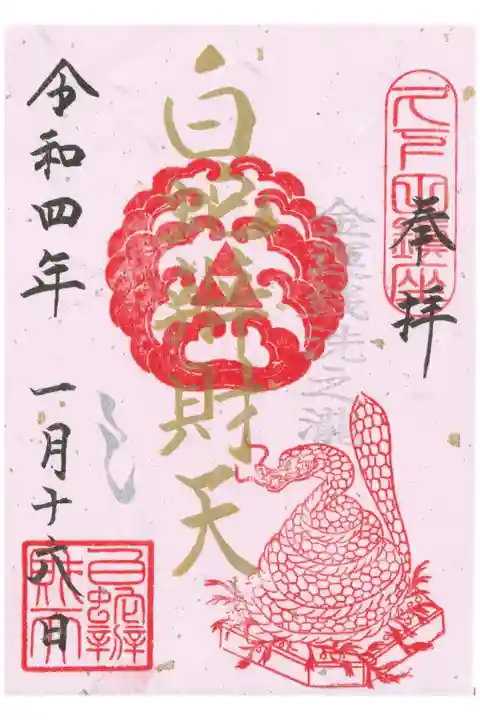 奉拝
金運銭洗之瀧
白蛇辨財天
令和四年 一月十六日
白蛇辨
財天